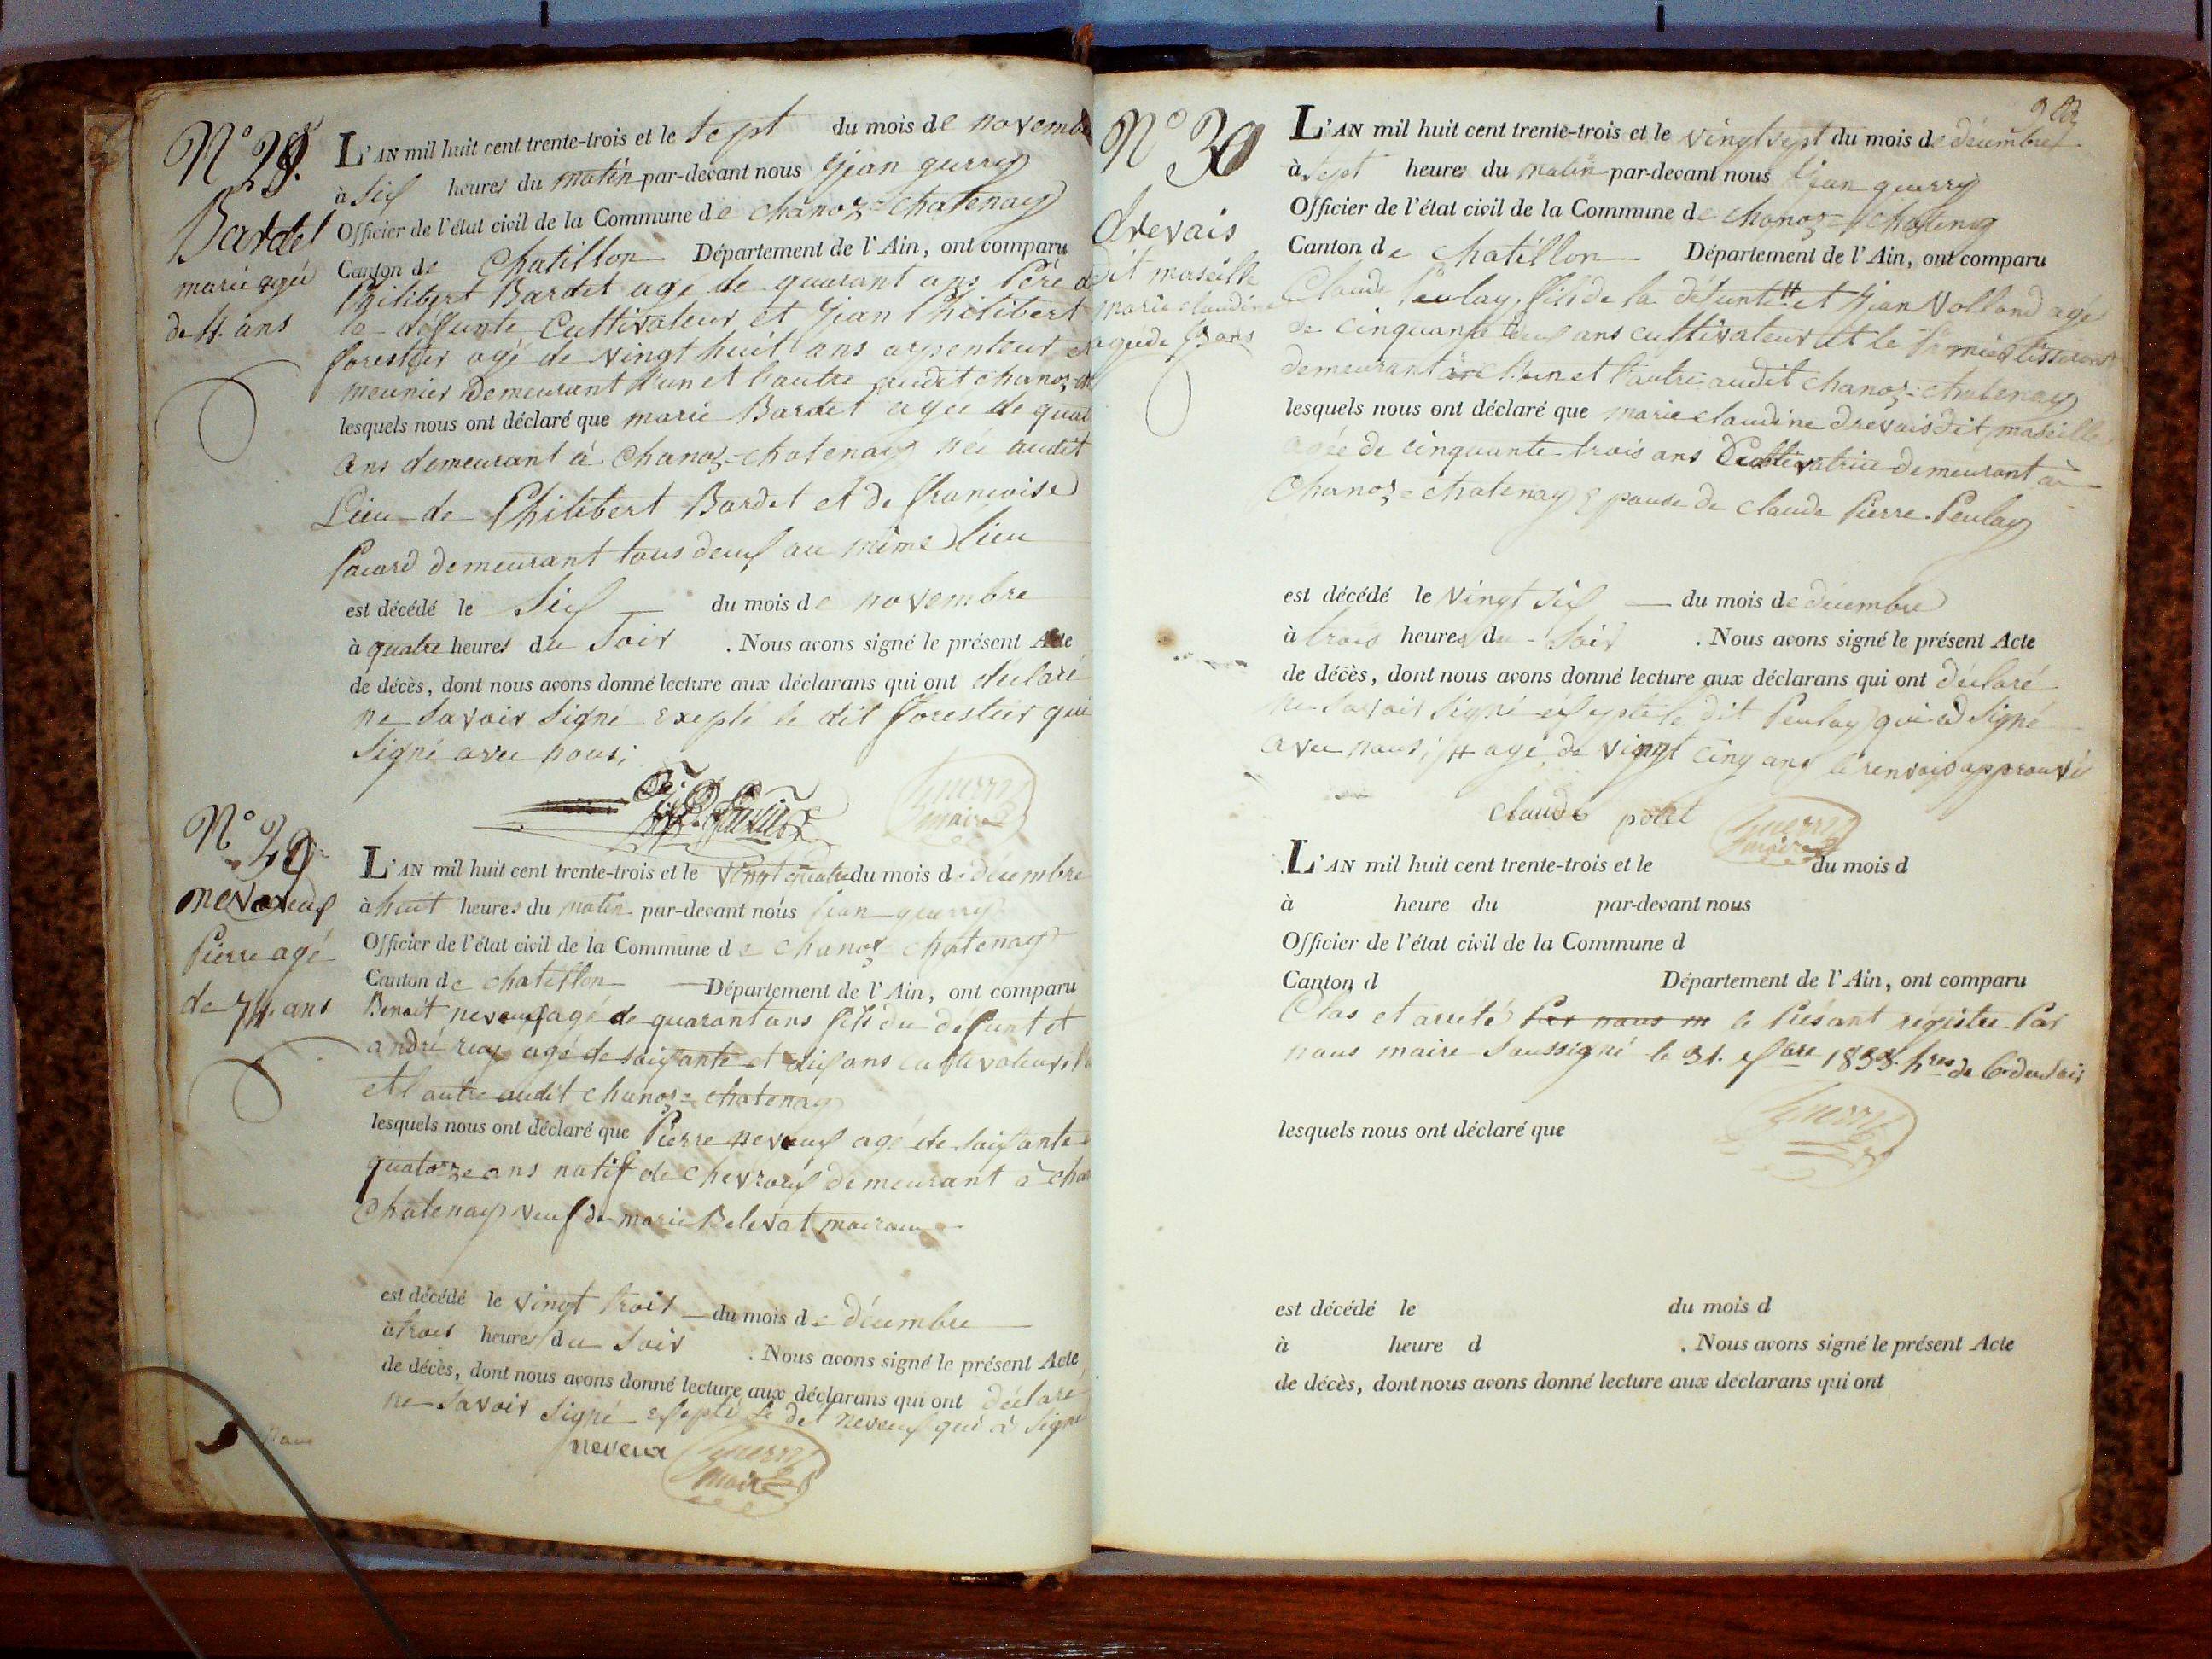 N° 28.
Bardet
marie agée
de 4. ans
L'AN mil huit cent trente-trois et le sept du mois de novembre
à Six heures du matin par-devant nous Jean guerry
Officier de l'état civil de la Commune de chanoz=chatenay
Canton de Chatillon Département de l'Ain, ont comparu
Philibert Bardet agé de quarant ans Père de
la défunte Cultivateur et Jean Philibert
forestier agé de vingt huit ans arpenteur et
meunier Demeurant l'un et l'autre audit chanoz-ch
lesquels nous ont déclaré que marie Bardet agée de quat
ans demeurant à Chanoz=chatenay née audit
Lieu de Philibert Bardet et de francoise
Pacard demeurant tous deux au même lieu
est décédé le Six du mois de novembre
à quatre heures du Soir . Nous avons signé le présent Acte
de décès, dont nous avons donné lecture aux déclarans qui ont déclaré
ne Savoir Signé Exepté le dit forestier qui
Signé avec nous;
Guerry
maire
N° 29
neveux
Pierre agé
de 74. ans
L'AN mil huit cent trente-trois et le Vingt quatre du mois de décembre
à huit heures du matin par-devant nous Jean guerry
Officier de l'état civil de la Commune de chanoz chatenay
Canton de chatillon Département de l'Ain, ont comparu
Benoit neveux agé de quarant ans fils du défunt et
andré rey agé de Soixante et dix ans cultivateurs l'
et l'autre audit chanoz=chatenay
lesquels nous ont déclaré que Pierre neveux agé de Soixante
quatorze ans natif de Chevroux demeurant à cha
Chatenay veuf de marie Belevat
est décédé le vingt trois du mois de décembre
à trois heures du Soir . Nous avons signé le présent Acte
de décès, dont nous avons donné lecture aux déclarans qui ont déclaré
ne Savoir Signé exepté le dit neveux qui à Signé
neveux Guerry
maire
N° 30
drevais
dit marseille
marie claudine
agée de 53 ans
L'AN mil huit cent trente-trois et le vingt sept du mois de décembre
à Sept heures du matin par-devant nous Jean guerry
Officier de l'état civil de la Commune de chanoz=chatenay
Canton de chatillon Département de l'Ain, ont comparu
Claude Peulay, fils de la défunte # et Jean Volland agé
de cinquante ans cultivateur et le premier tisserant
demeurant l'un et l'autre audit chanoz-chatenay
lesquels nous ont déclaré que marie claudine drevais dit marseille
agée de cinquante trois ans Cultivatrice demeurant à
Chanoz=chatenay Epouse de claude Pierre Peulay
est décédé le vingt Six du mois de décembre
à trois heures du Soir . Nous avons signé le présent Acte
de décès, dont nous avons donné lecture aux déclarans qui ont déclaré
ne Savoir Signé exepté le dit Peulay qui a Signé
avec nous; # agé de vingt cinq ans le renvois approuvé
claude Guerry
maire
L'AN mil huit cent trente-trois et le du mois d
à heure du par-devant nous
Officier de l'état civil de la Commune d
Canton d Département de l'Ain, ont comparu
Clos et arrêté Par nous m le Présant régistre Par
nous maire Soussigné le 31. xbre 1833. hres de 6 du Soir
Guerry
lesquels nous ont déclaré que
est décédé le du mois d
à heure d . Nous avons signé le présent Acte
de décès, dont nous avons donné lecture aux déclarans qui ont